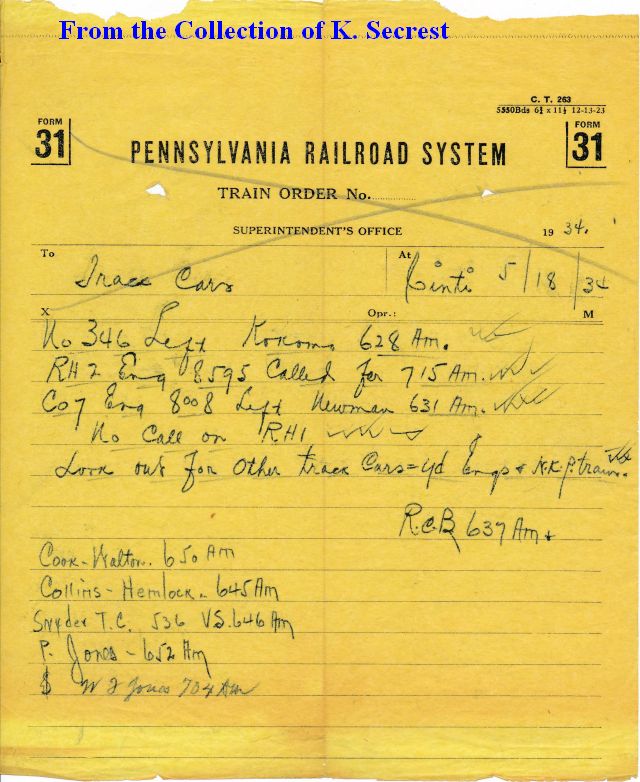 From the Collection of K. Secrest
C. T. 263
5550Bds 6½ x 11½ 12-13-23
FORM 31
FORM 31
PENNSYLVANIA RAILROAD SYSTEM
TRAIN ORDER No.
SUPERINTENDENT'S OFFICE
19 34.
To Track Cars
At Cinti 5/18/34
X Opr.: M
No 346 Left Kokomo 628 Am.
RH 2 Eng 8595 Called for 715 Am.
CO 7 Eng 8008 Left Newman 631 Am.
No Call on RH1
Look out for Other Track Cars = yd Engs & N.K.P. trains.
R.C.B. 637 Am
Cook - Walton. 650 AM
Collins - Hemlock. 645 Am
Snyder T.C. 536 VS. 646 Am
P. Jones - 652 Am
W J Jones 704 Am